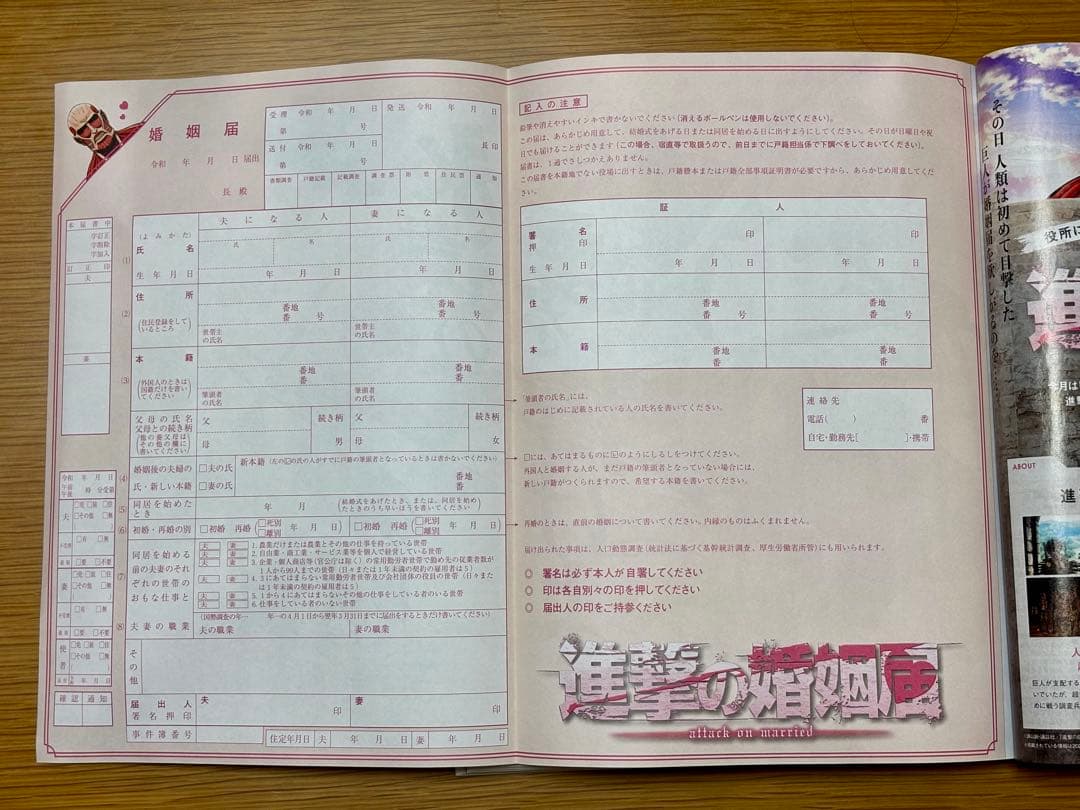 婚姻届
令和 年 月 日届出
長殿
受理 令和 年 月 日
第 号
送付 令和 年 月 日
第 号
発送 令和 年 月 日
長印
書類調査 戸籍記載 記載調査 調査票 附票 住民票 通知
本届書中
字訂正
字削除
字加入
訂正印
夫
妻
夫になる人 妻になる人
(1)
(よみかた)
氏名
氏 名 氏 名
生年月日
年 月 日 年 月 日
(2)
住所
(住民登録をしているところ)
番地
番 号
番地
番 号
世帯主の氏名
世帯主の氏名
(3)
本籍
(外国人のときは国籍だけを書いてください)
番地
番
番地
番
筆頭者の氏名
筆頭者の氏名
父母の氏名
父母との続き柄
(他の養父母はその他の欄に書いてください)
父 続き柄 父 続き柄
母 男 母 女
(4)
婚姻後の夫婦の氏・新しい本籍
□夫の氏
□妻の氏
新本籍(左の☑の氏の人がすでに戸籍の筆頭者となっているときは書かないでください)
番地
番
(5)
同居を始めたとき
年 月
(結婚式をあげたとき、または、同居を始めたときのうち早いほうを書いてください)
(6)
初婚・再婚の別
□初婚 再婚(□死別 □離別 年 月 日) □初婚 再婚(□死別 □離別 年 月 日)
(7)
同居を始める前の夫妻のそれぞれの世帯のおもな仕事と
夫 妻 1.農業だけまたは農業とその他の仕事を持っている世帯
夫 妻 2.自由業・商工業・サービス業等を個人で経営している世帯
夫 妻 3.企業・個人商店等(官公庁は除く)の常用勤労者世帯で勤め先の従業者数が
1人から99人までの世帯(日々または1年未満の契約の雇用者は5)
夫 妻 4.3にあてはまらない常用勤労者世帯及び会社団体の役員の世帯(日々または
1年未満の契約の雇用者は5)
夫 妻 5.1から4にあてはまらないその他の仕事をしている者のいる世帯
夫 妻 6.仕事をしている者のいない世帯
(8)
夫妻の職業
(国勢調査の年… 年…の4月1日から翌年3月31日までに届出をするときだけ書いてください)
夫の職業 妻の職業
その他
届出人
署名押印
夫 印 妻 印
事件簿番号
住定年月日 夫 年 月 日 妻 年 月 日
令和 年 月 日
午前 午後 時 分受領
夫
□有 □無
妻
□有 □無
使者
確認 通知
記入の注意
鉛筆や消えやすいインキで書かないでください(消えるボールペンは使用しないでください)。
この届は、あらかじめ用意して、結婚式をあげる日または同居を始める日に出すようにしてください。その日が日曜日や祝
日でも届けることができます(この場合、宿直等で取扱うので、前日までに戸籍担当係で下調べをしておいてください)。
届書は、1通でさしつかえありません。
この届書を本籍地でない役場に出すときは、戸籍謄本または戸籍全部事項証明書が必要ですから、あらかじめ用意してくだ
さい。
証人
署名
押印
印 印
生年月日
年 月 日 年 月 日
住所
番地
番 号
番地
番 号
本籍
番地
番
番地
番
「筆頭者の氏名」には、
戸籍のはじめに記載されている人の氏名を書いてください。
連絡先
電話( ) 番
自宅・勤務先[ ]・携帯
□には、あてはまるものに☑のようにしるしをつけてください。
外国人と婚姻する人が、まだ戸籍の筆頭者となっていない場合には、
新しい戸籍がつくられますので、希望する本籍を書いてください。
再婚のときは、直前の婚姻について書いてください。内縁のものはふくまれません。
届け出られた事項は、人口動態調査(統計法に基づく基幹統計調査、厚生労働省所管)にも用いられます。
署名は必ず本人が自署してください
印は各自別々の印を押してください
届出人の印をご持参ください
進撃の婚姻届
attack on married
その日 人類は初めて目撃した
役所に
進
今月は
進撃
ABOUT
進
巨人が支配する
いていたが、超
めに戦う調査兵